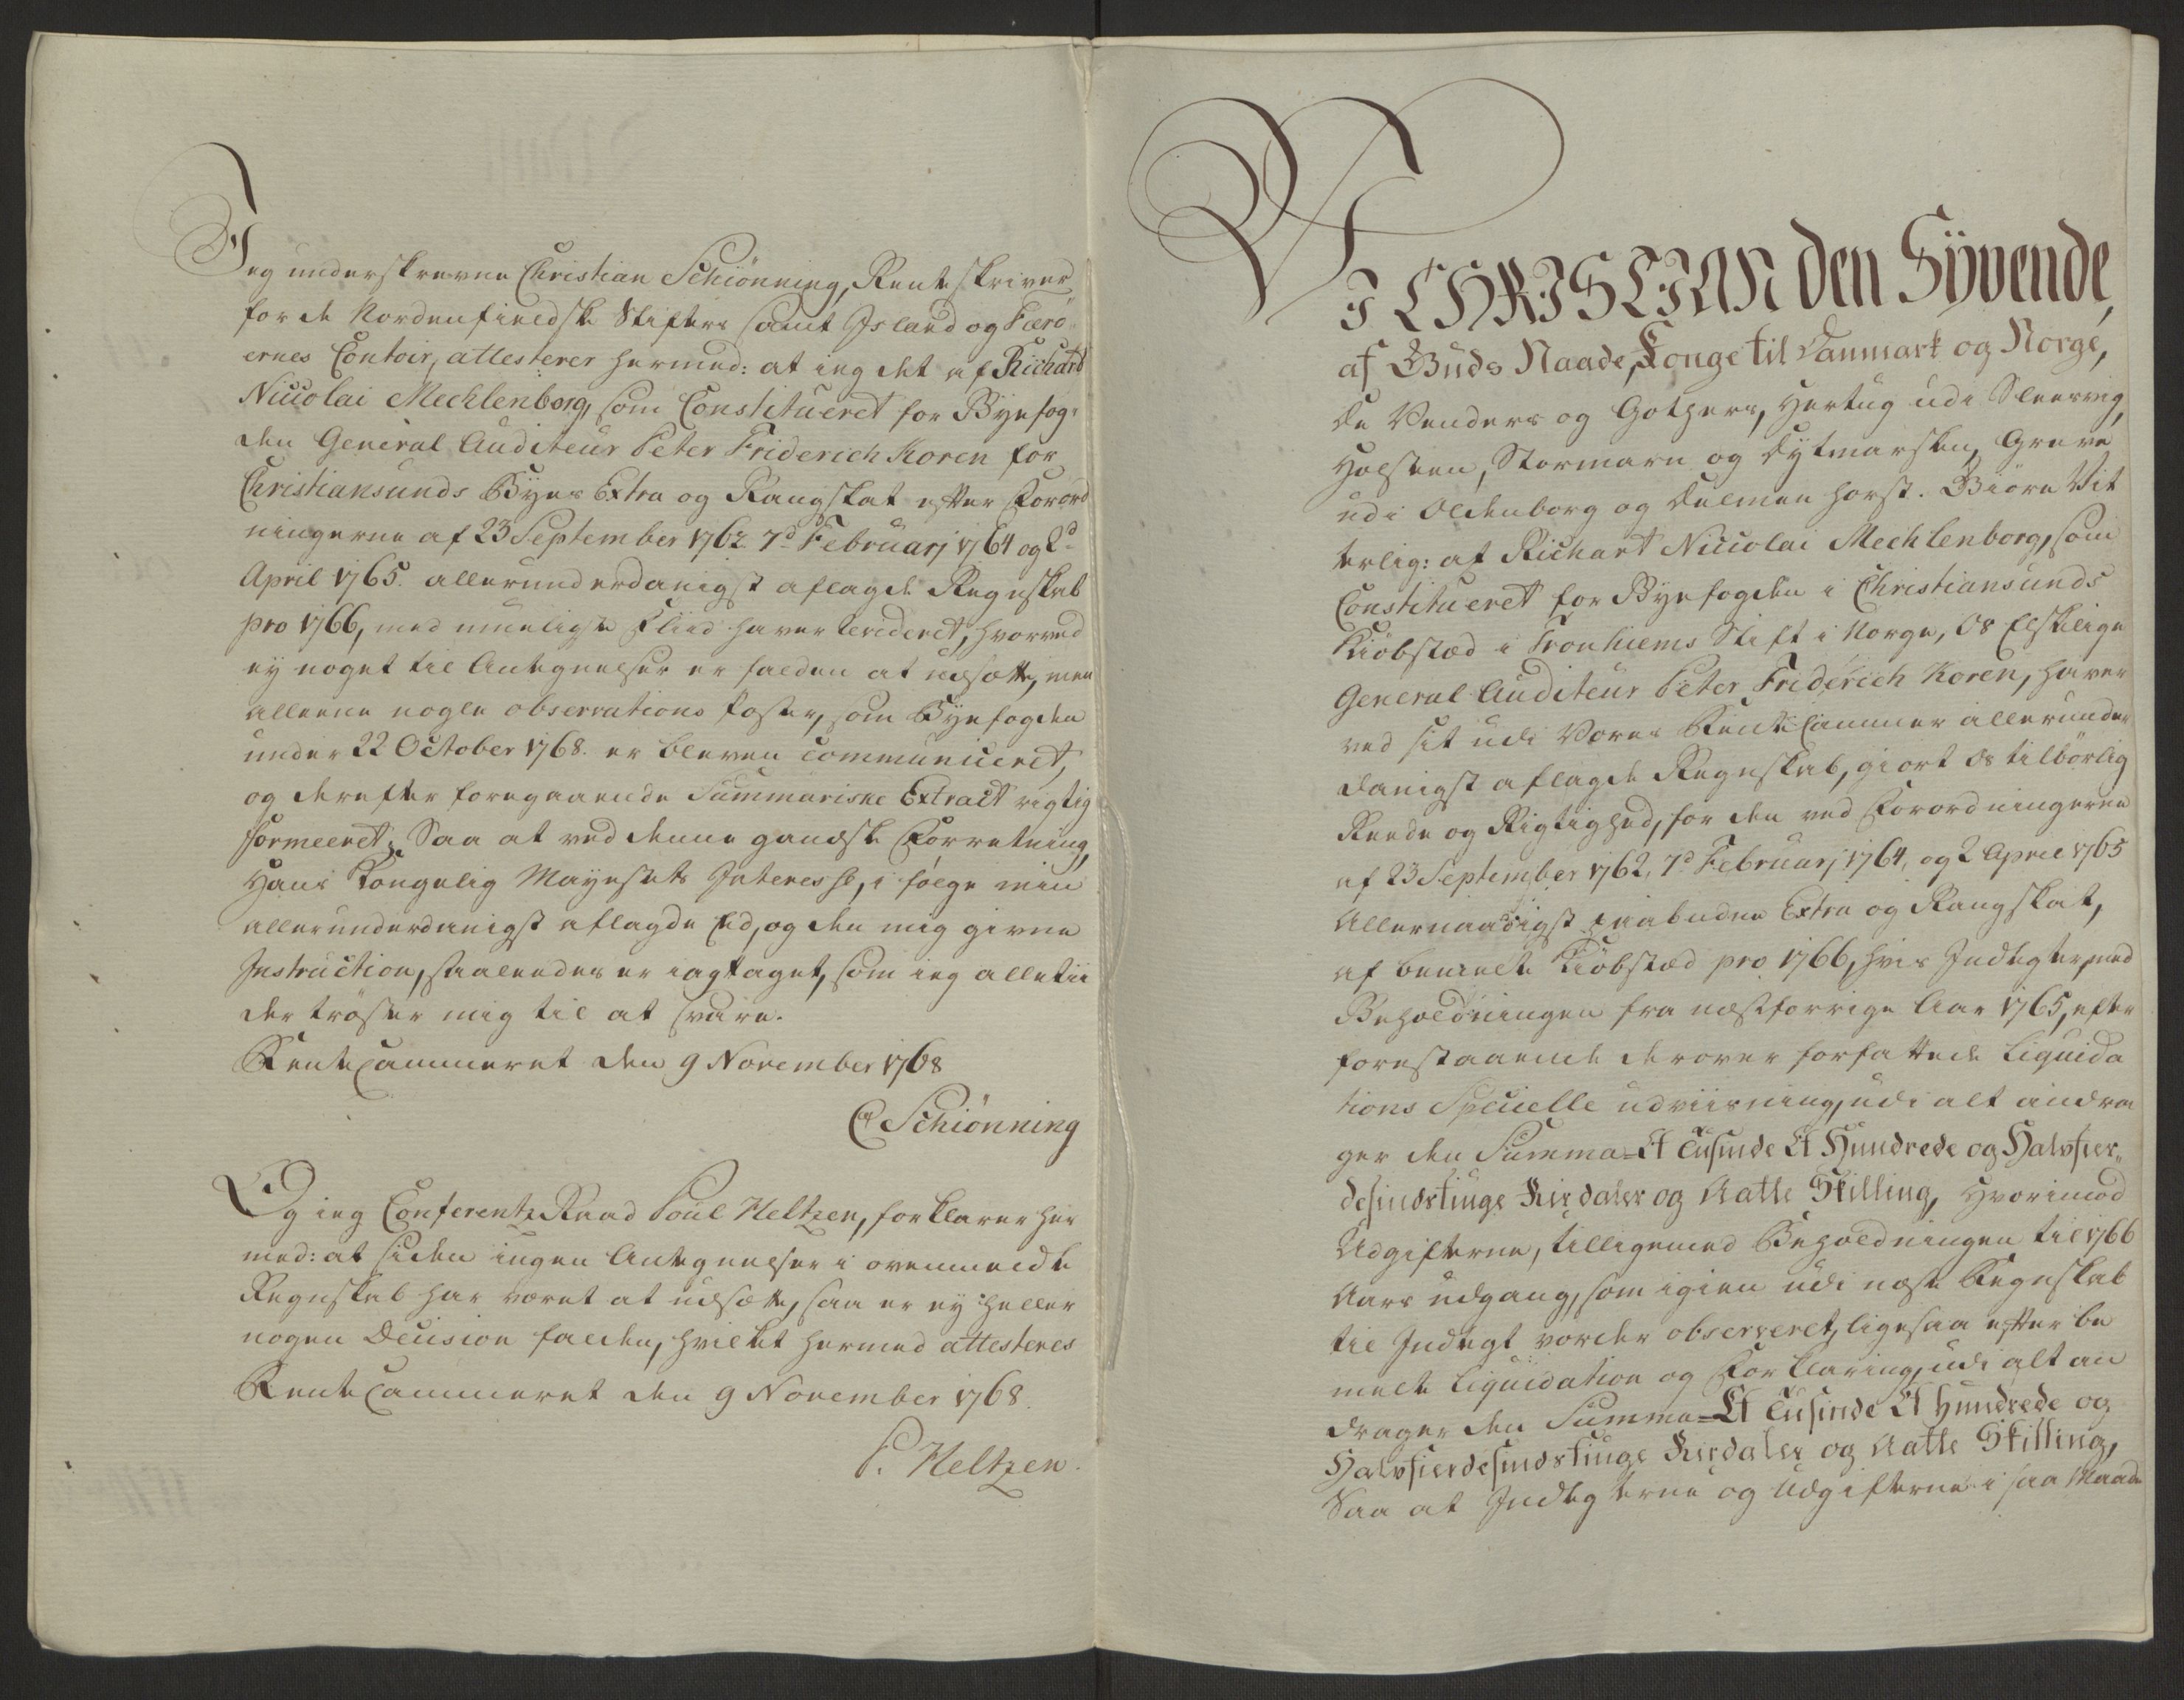 Jeg underskrevne Christian Schiönning, Renteskriver
for de Nordenfieldske Stifters samt Island og Færö
ernes Contoir, attesterer hermed: at ieg det af Richard
Nicolai Mechlenborg, som Constitueret for Byefog-
den General Auditeur Peter Friderich Koren for
Christiansunds Byes Extra og Rangskat efter Forord
ningerne af 23 September 1762. 7d Februarj 1764 og 2d
April 1765. allerunderdanigst aflagde Regnskab
pro 1766, med mueligste Fliid haver revideret, hvorved
ey noget til Antegnelser er falden at udsætte, men
alleene nogle observations Poster, som Byefogden
under 22 October 1768. er bleven communiceret,
og derefter foregaaende Summariske Extract rigtig
formeeret; Saa at ved denne gandske Forretning,
Hans Kongelig Mayestets Interesse, i følge min
allerunderdanigst aflagde Eed, og den mig givne
Instruction, saaleedes er iagtaget, som ieg alletii
der tröster mig til at svare.
RenteCammeret den 9 November 1768
C Schiönning
Og ieg ConferentzRaad Poul Heltzen, forklarer her
med: at siden ingen Antegnelser i ovenmeldte
Regnskab har været at udsætte, saa er ey heller
nogen Decision falden, hvilket hermed attesteres
RenteCammeret den 9 November 1768.
P. Heltzen.
VI CHRISTIAN den Syvende,
af Guds Naade, Konge til Danmark og Norge,
de Venders og Gothers, Hertug udi Slesvig,
Holsteen, Stormarn og Dytmarsken, Greve
udi Oldenborg og Delmenhorst. Giöre Vit
terlig: at Richart Niccolai Mechlenborg, som
Constitueret for Byefogden i Christiansunds
Kiöbstæd i Tronhiems Stift i Norge, Os Elskelige
General Auditeur Peter Friderich Koren, haver
ved sit udi Vores RenteCammer allerunder
danigst aflagde Regnskab, giort Os tilbörlig
Reede og Rigtighed, for den ved Forordningerne
af 23 September 1762, 7d Februarj 1764, og 2 April 1765
Allernaadigst paabudne Extra og Rangskat,
af bemelte Kiöbstæd pro 1766, hvis Indtegter, med
Beholdningen fra næstforrige Aar 1765, efter
forestaaende derover forfattede Liquida
tions Specielle udviisning, udi alt andra
ger den Summa = Et Tusinde Et Hundrede og Halvfier-
desindstiuge Rixdaler og Aatte Skilling, Hvorimod
Udgifterne, tilligemed Beholdningen til 1766
Aars udgang, som igien udi neste Regnskab
til Indtegt vorder observeret, ligesaa efter be
melte Liquidation og Forklaring, udi alt an
drager den Summa = Et Tusinde Et hundrede og
Halvfierdesindstiuge Rixdaler og Aatte Skilling,
Saa at Indtegterne og Udgifterne i saa Maade